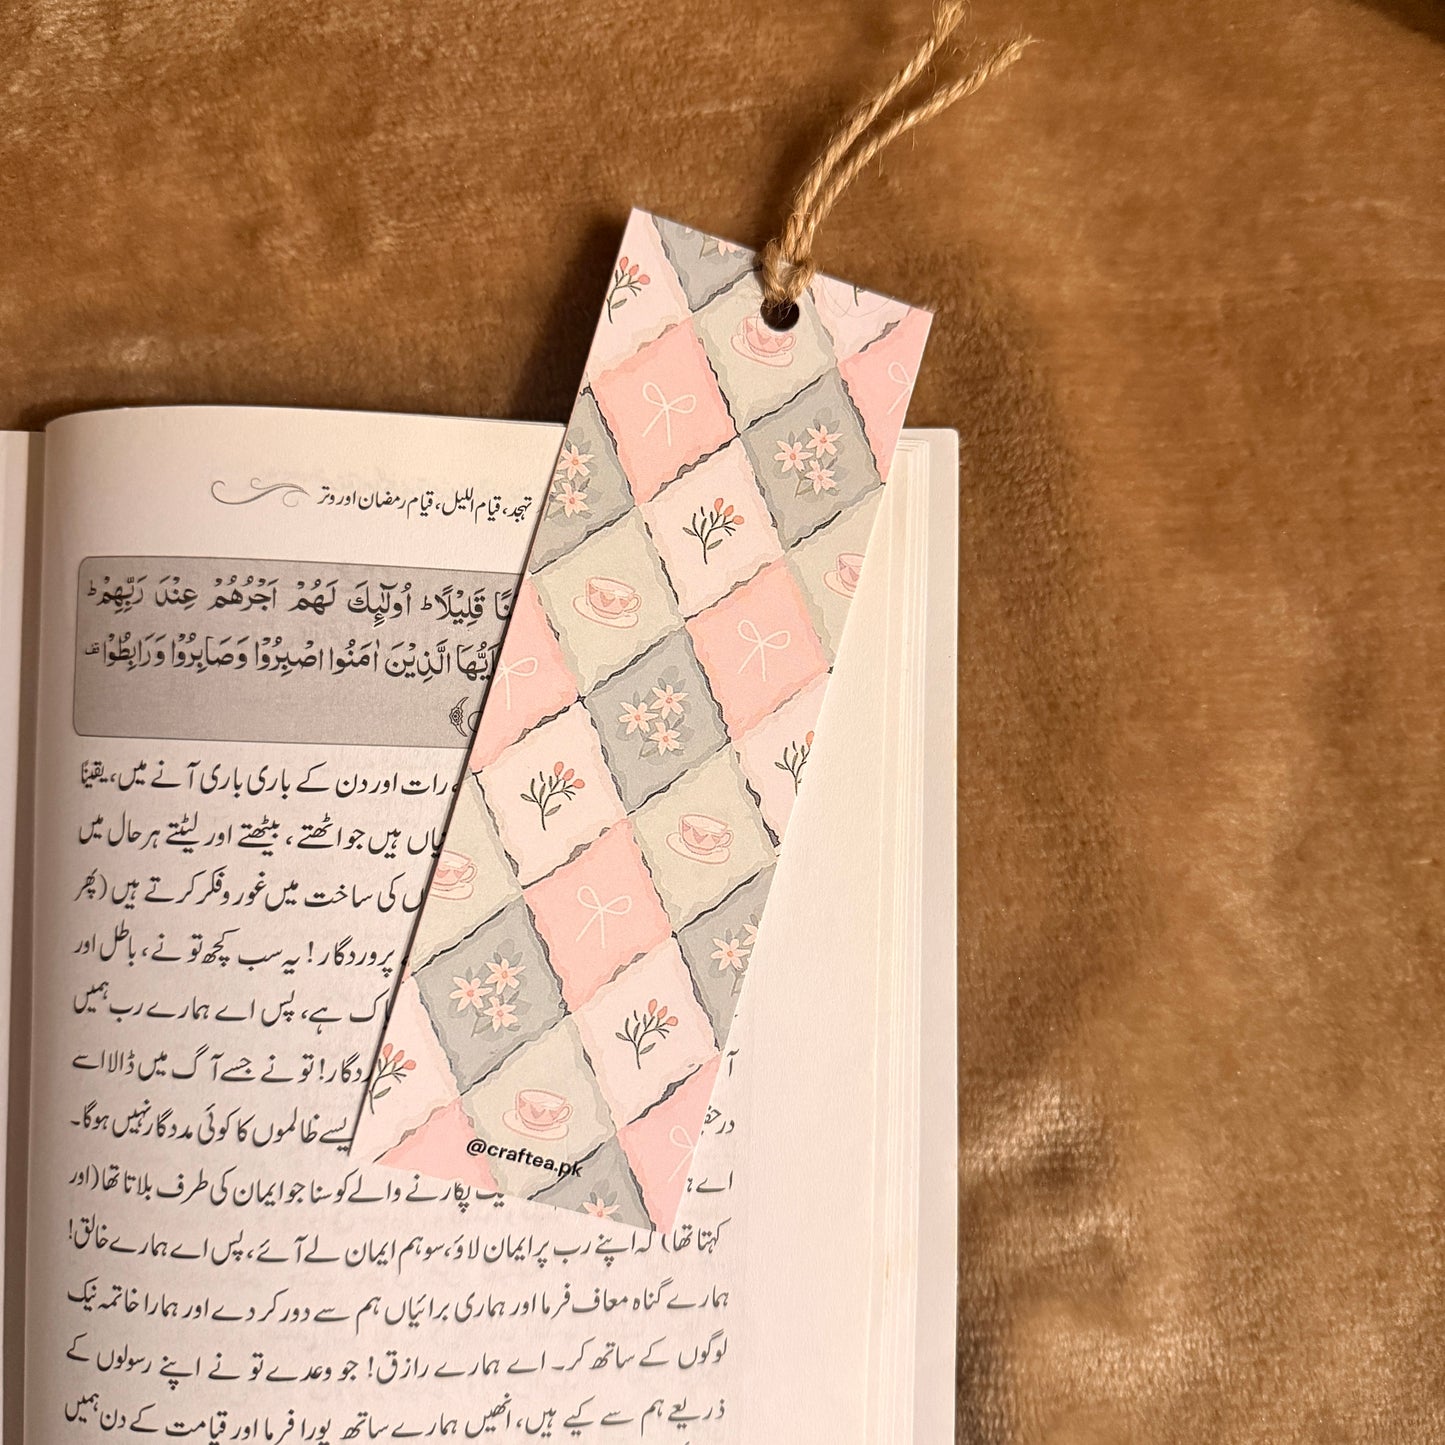 تہجد، قیام اللیل، قیام رمضان اور وتر
قَلِيْلًا ؕ اُولٰٓىِٕكَ لَهُمْ اَجْرُهُمْ عِنْدَ رَبِّهِمْ ؕ
الَّذِيْنَ اٰمَنُوا اصْبِرُوْا وَصَابِرُوْا وَرَابِطُوْا
رات اور دن کے باری باری آنے میں، یقیناً
ہیں جو اٹھتے، بیٹھتے اور لیٹتے ہر حال میں
کی ساخت میں غور و فکر کرتے ہیں (پھر
پروردگار! یہ سب کچھ تو نے، باطل اور
ہے، پس اے ہمارے رب ہمیں
تو نے جسے آگ میں ڈالا اسے
ظالموں کا کوئی مددگار نہیں ہوگا۔
اے
پکارنے والے کو سنا جو ایمان کی طرف بلاتا تھا (اور
کہتا تھا) کہ اپنے رب پر ایمان لاؤ، سو ہم ایمان لے آئے، پس اے ہمارے خالق!
ہمارے گناہ معاف فرما اور ہماری برائیاں ہم سے دور کر دے اور ہمارا خاتمہ نیک
لوگوں کے ساتھ کر۔ اے ہمارے رازق! جو وعدے تو نے اپنے رسولوں کے
ذریعے ہم سے کیے ہیں، انھیں ہمارے ساتھ پورا فرما اور قیامت کے دن ہمیں
@craftea.pk